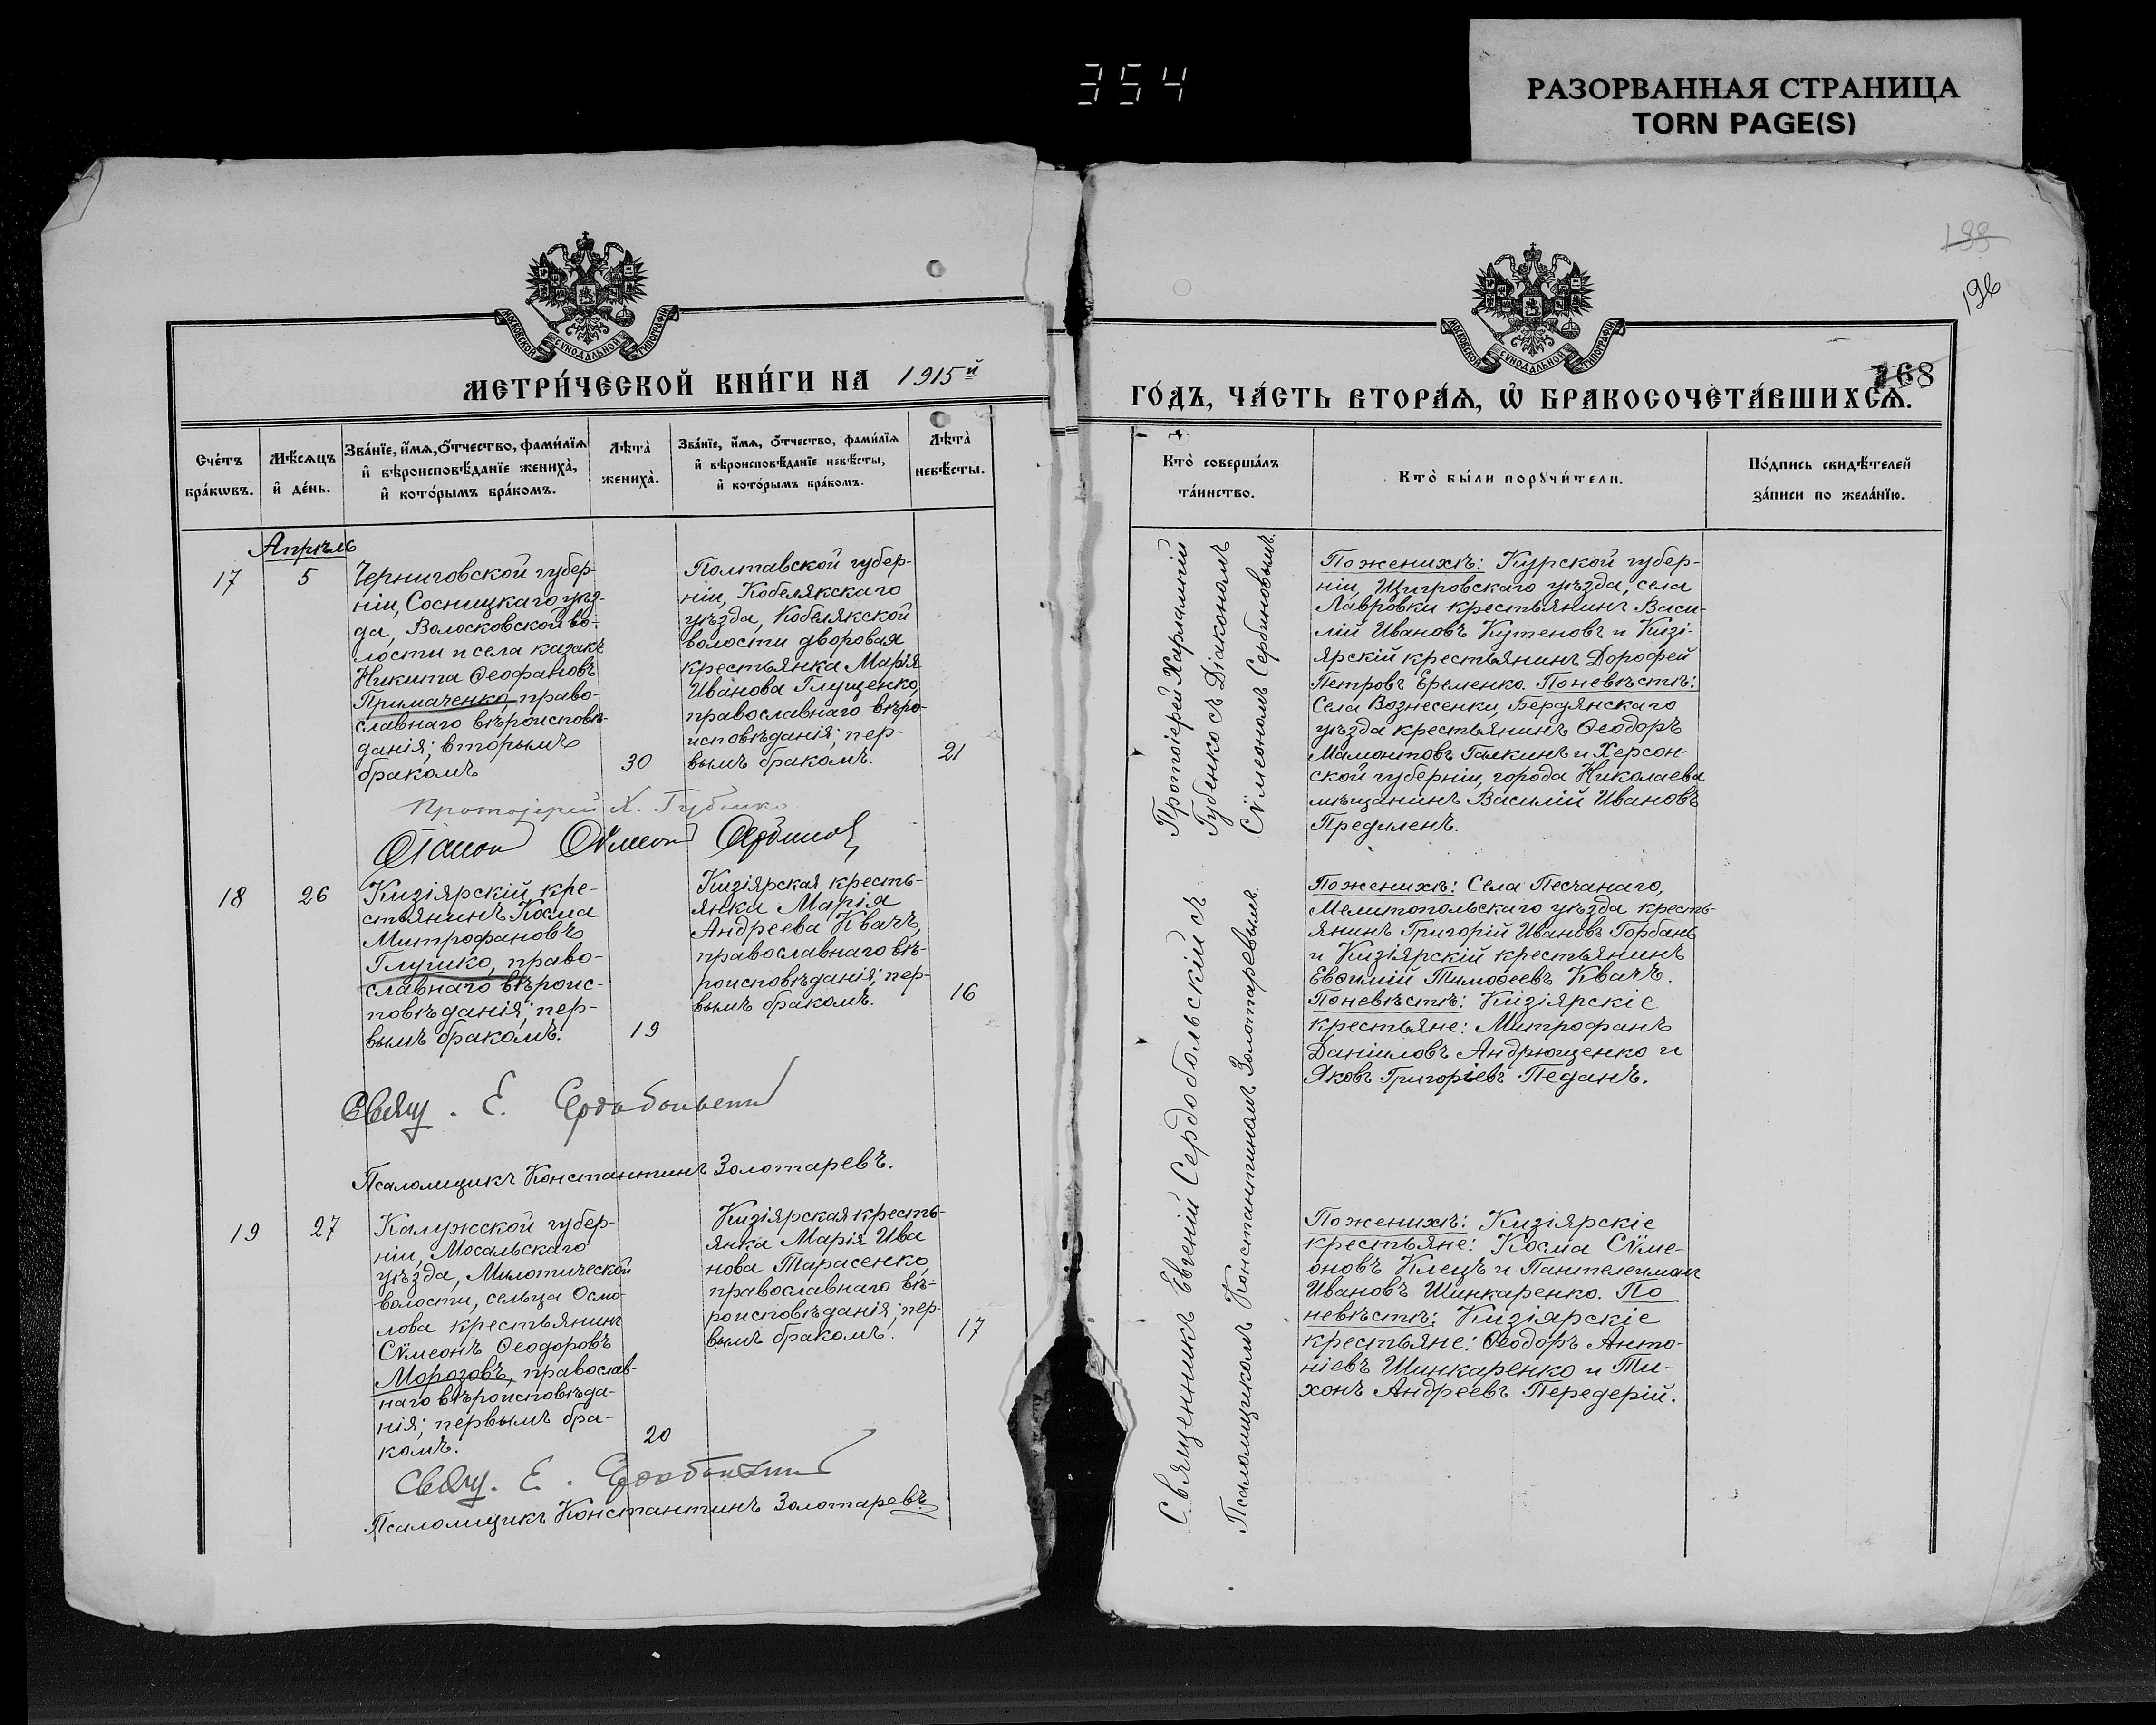 354
РАЗОРВАННАЯ СТРАНИЦА
TORN PAGE(S)
196
168
МОСКОВСКОЙ СѴНОДАЛЬНОЙ ТИПОГРАФІИ
МОСКОВСКОЙ СѴНОДАЛЬНОЙ ТИПОГРАФІИ
МЕТРИ́ЧЕСКОЙ КНИ́ГИ НА 1915й
ГО́ДЪ, ЧА́СТЬ ВТОРА́Ѧ, Ѡ БРАКОСОЧЕТА́ВШИХСѦ.
Сче́тъ
бра́кѡвъ.
Мѣ́сяцъ
и҆ де́нь.
Зва́нїе, и҆́мѧ, ѻ҆́тчество, фами́лїѧ
и҆ вѣроисповѣ́данїе жениха̀,
и҆ кото́рымъ бра́комъ.
Лѣта̀
жениха̀.
Зва́нїе, и҆́мѧ, ѻ҆́тчество, фами́лїѧ
и҆ вѣроисповѣ́данїе невѣ́сты,
и҆ кото́рымъ бра́комъ.
Лѣта̀
невѣ́сты.
Кто̀ соверша́лъ
та́инство.
Кто̀ бы́ли порꙋчи́тели.
По́дпись свидѣ́телей
за́писи по жела́нїю.
Апрѣль
17
5
Черниговской губер-
ніи, Сосницкаго уѣз-
да, Волосковской во-
лости и села казакъ
Никита Ѳеофановъ
Примаченко, право-
славнаго вѣроисповѣ-
данія; вторымъ
бракомъ
30
Полтавской губер-
ніи, Кобелякскаго
уѣзда, Кобелякской
волости дворовая
крестьянка Марія
Иванова Глущенко,
православнаго вѣро-
исповѣданія; пер-
вымъ бракомъ.
21
Протоіерей Харлампій
Губенко съ Діакономъ
Сѵмеономъ Сербиновымъ.
По женихѣ: Курской губер-
ніи, Щигровскаго уѣзда, села
Лавровки крестьянинъ Васи-
лій Ивановъ Кутеновъ и Кизі-
ярскій крестьянинъ Дорофей
Петровъ Еременко. По невѣстѣ:
Села Вознесенки, Бердянскаго
уѣзда крестьянинъ Ѳеодоръ
Мамонтовъ Галкинъ и Херсон-
ской губерніи, города Николаева
мѣщанинъ Василій Ивановъ
Предиленъ.
Протоіерей Х. Губенко
Діакон Сѵмеон Сербинов
18
26
Кизіярскій кре-
стьянинъ Косма
Митрофановъ
Глушко, право-
славнаго вѣроис-
повѣданія; пер-
вымъ бракомъ.
19
Кизіярская кресть-
янка Марія
Андреева Квачъ,
православнаго вѣ-
роисповѣданія; пер-
вымъ бракомъ.
16
Священникъ Евгеній Сердобольскій съ
Псаломщикомъ Константиномъ Золотаревымъ.
По женихѣ: Села Песчанаго,
Мелитопольскаго уѣзда кресть-
янинъ Григорій Ивановъ Горбань
и Кизіярскій крестьянинъ
Евѳимій Тимоѳеевъ Квачъ.
По невѣстѣ: Кизіярскіе
крестьяне: Митрофанъ
Даніиловъ Андрющенко и
Яковъ Григорьевъ Педанъ.
Свящ. Е. Сердобольскій
Псаломщикъ Константинъ Золотаревъ.
19
27
Калужской губер-
ніи, Мосальскаго
уѣзда, Милотической
волости, сельца Осмо-
лова крестьянинъ
Сѵмеонъ Ѳеодоровъ
Морозовъ, православ-
наго вѣроисповѣда-
нія; первымъ бра-
комъ.
20
Кизіярская кресть-
янка Марія Ива
нова Тарасенко,
православнаго вѣ-
роисповѣданія; пер-
вымъ бракомъ.
17
По женихѣ: Кизіярскіе
крестьяне: Косма Сѵме-
оновъ Клецъ и Пантелеимонъ
Ивановъ Шинкаренко. По
невѣстѣ: Кизіярскіе
крестьяне: Ѳеодоръ Анто-
ніевъ Шинкаренко и Ти-
хонъ Андреевъ Передерій.
Свящ. Е. Сердобольскій
Псаломщикъ Константинъ Золотаревъ